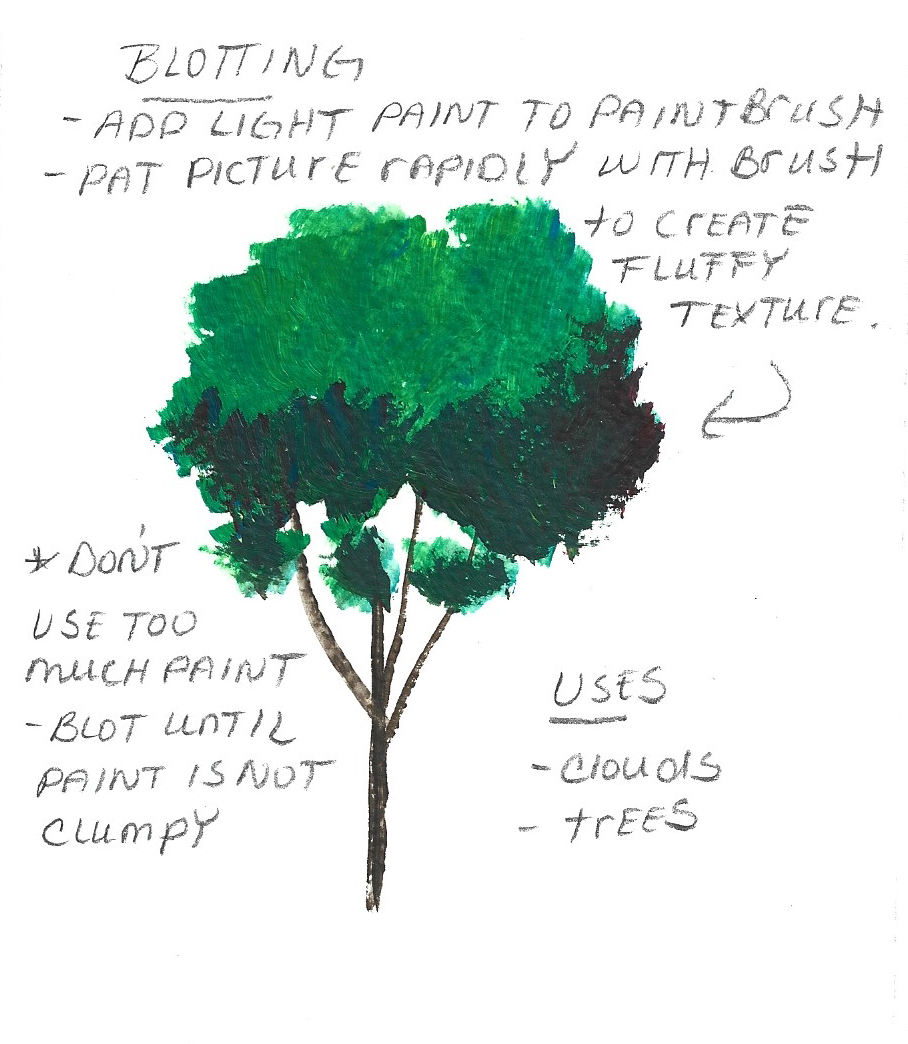 BLOTTING
- ADD LIGHT PAINT TO PAINTBrUSH
- PAT PICTUrE rAPIDLY WITH BrUSH
to CrEATE
FLUFFY
TEXTUrE.
* DON'T
USE TOO
mUCH PAINT
- BLOT UnTIL
PAINT IS NOT
Clumpy
USES
- Clouds
- trEES